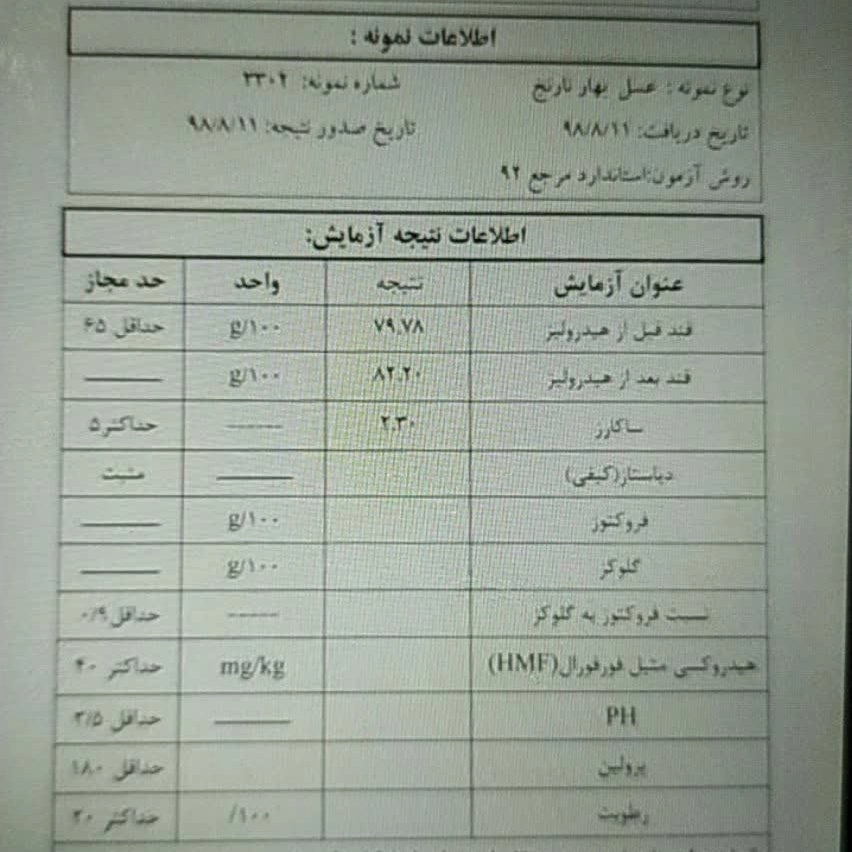 اطلاعات نمونه :
نوع نمونه : عسل بهار نارنج شماره نمونه: ۳۳۰۲
تاریخ دریافت: ۹۸/۸/۱۱ تاریخ صدور نتیجه: ۹۸/۸/۱۱
روش آزمون:استاندارد مرجع ۹۲
اطلاعات نتیجه آزمایش:
عنوان آزمایش نتیجه واحد حد مجاز
قند قبل از هیدرولیز ۷۹.۷۸ g/۱۰۰ حداقل ۶۵
قند بعد از هیدرولیز ۸۲.۲۰ g/۱۰۰ ———
ساکارز ۲.۳۰ ------ حداکثر۵
دیاستاز(کیفی) ——— مثبت
فروکتوز g/۱۰۰ ———
گلوکز g/۱۰۰ ———
نسبت فروکتوز به گلوکز ------ حداقل ۰/۹
هیدروکسی متیل فورفورال(HMF) mg/kg حداکثر ۴۰
PH ——— حداقل ۳/۵
پرولین حداقل ۱۸۰
رطوبت /۱۰۰ حداکثر ۲۰